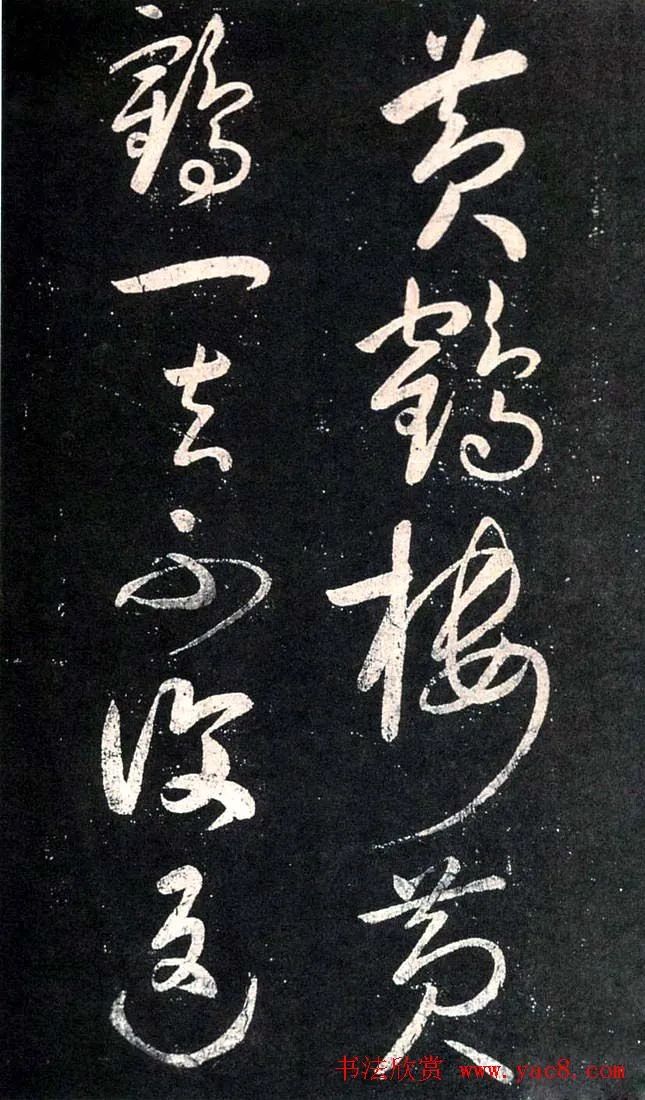 黄鹤樓黄
鹤一去不復返
书法欣赏 www.yac8.com